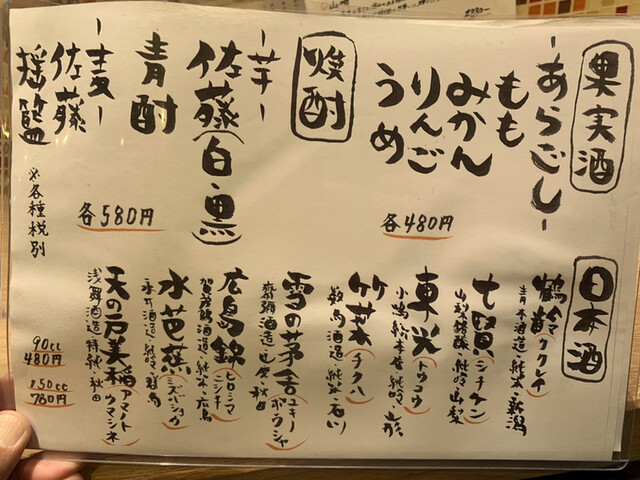 果実酒
-あらごし-
もも
みかん
りんご
うめ
各480円
焼酎
-芋-
佐藤(白・黒)
青酎
-麦-
佐藤
揺籃
各580円
※各種税別
日本酒
鶴齢 カクレイ
青木酒造・純米・新潟
七賢 シチケン
山梨銘醸・純吟・山梨
東光 トウコウ
小嶋総本店・純吟・山形
竹葉 チクハ
数馬酒造・純米・石川
雪の茅舎 ユキノボウシャ
齋彌酒造・山廃・秋田
広島錦 ヒロシマニシキ
賀茂鶴酒造・純米・広島
水芭蕉 ミズバショウ
永井酒造・純吟・群馬
天の戸 美稲 アマノト ウマシネ
浅舞酒造・特純・秋田
90cc
480円
150cc
780円